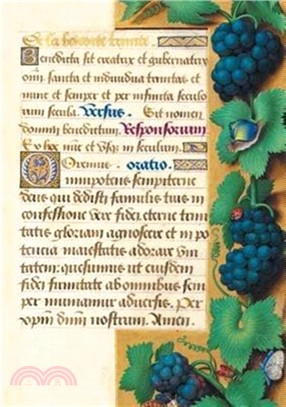 De la benoiste trinite.
Benedicta sit creatrix et gubernatrix
omniū sancta et indiuidua trinitas et
nunc et semper et per infinita seculo
rum secula. Versus. Sit nomen
domini benedictum. Responsorium
Ex hoc nūc et vsqz in seculum.
Oremus. oratio.
Omnipotens sempiterne
deus qui dedisti famulis tuis in
confessione vere fidei eterne trini
tatis gloriam agnoscere et in po
tencia maiestatis adorare vni
tatem: quesumus ut eiusdem
fidei firmitate ab omnibus sem
per muniamur aduersis. Per
xp̄m dn̄m nostrum. Amen.